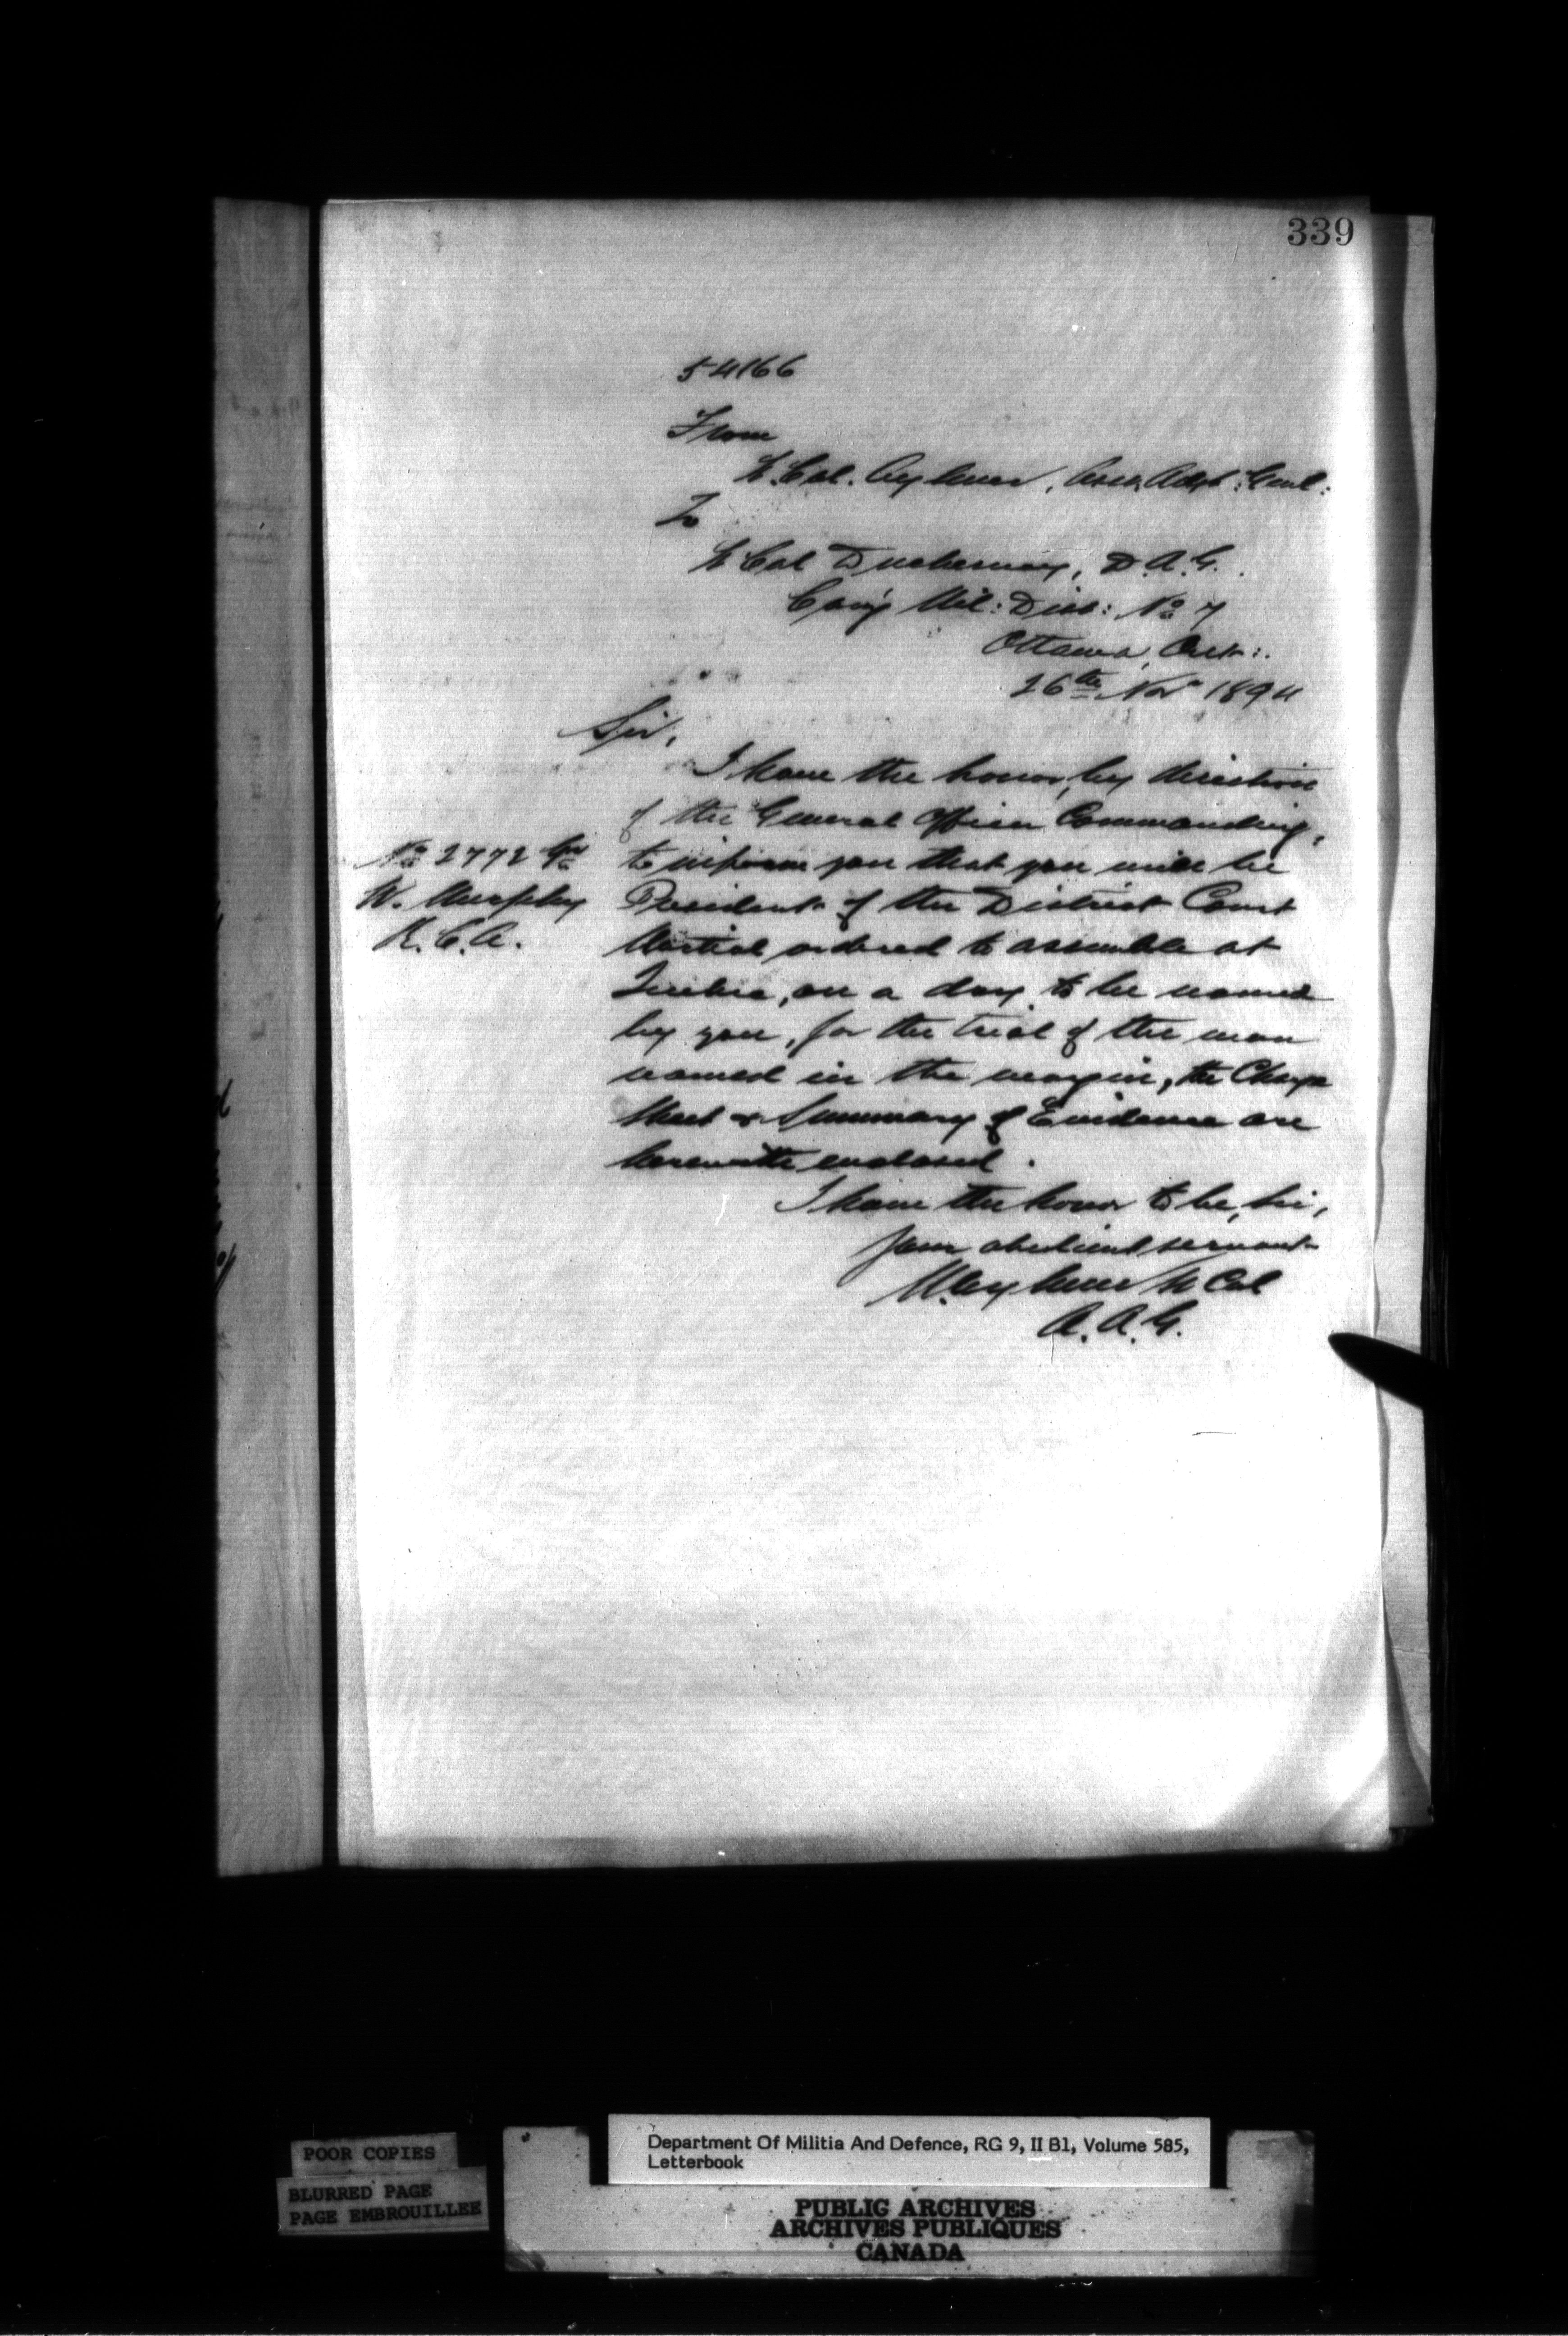 339
54166
From
Lt. Col. Aylmer, Asst. Adjt: Genl:
To
Lt Col Duchesnay, D.A.G.
Com'g Mil: Dist: No 7
Ottawa, Ont:.
26th Nov 1894
Sir,
I have the honor, by direction
of the General Officer Commanding,
to inform you that you will be
President of the District Court
Martial ordered to assemble at
Quebec, on a day to be named
by you, for the trial of the man
named in the margin, the Charge
Sheet & Summary of Evidence are
herewith enclosed.
No 2772 Gr
W. Murphy
R.C.A.
I have the honor to be, Sir,
Your obedient servant
M Aylmer Lt Col
A.A.G.
POOR COPIES
BLURRED PAGE
PAGE EMBROUILLEE
Department Of Militia And Defence, RG 9, II B1, Volume 585,
Letterbook
PUBLIC ARCHIVES
ARCHIVES PUBLIQUES
CANADA